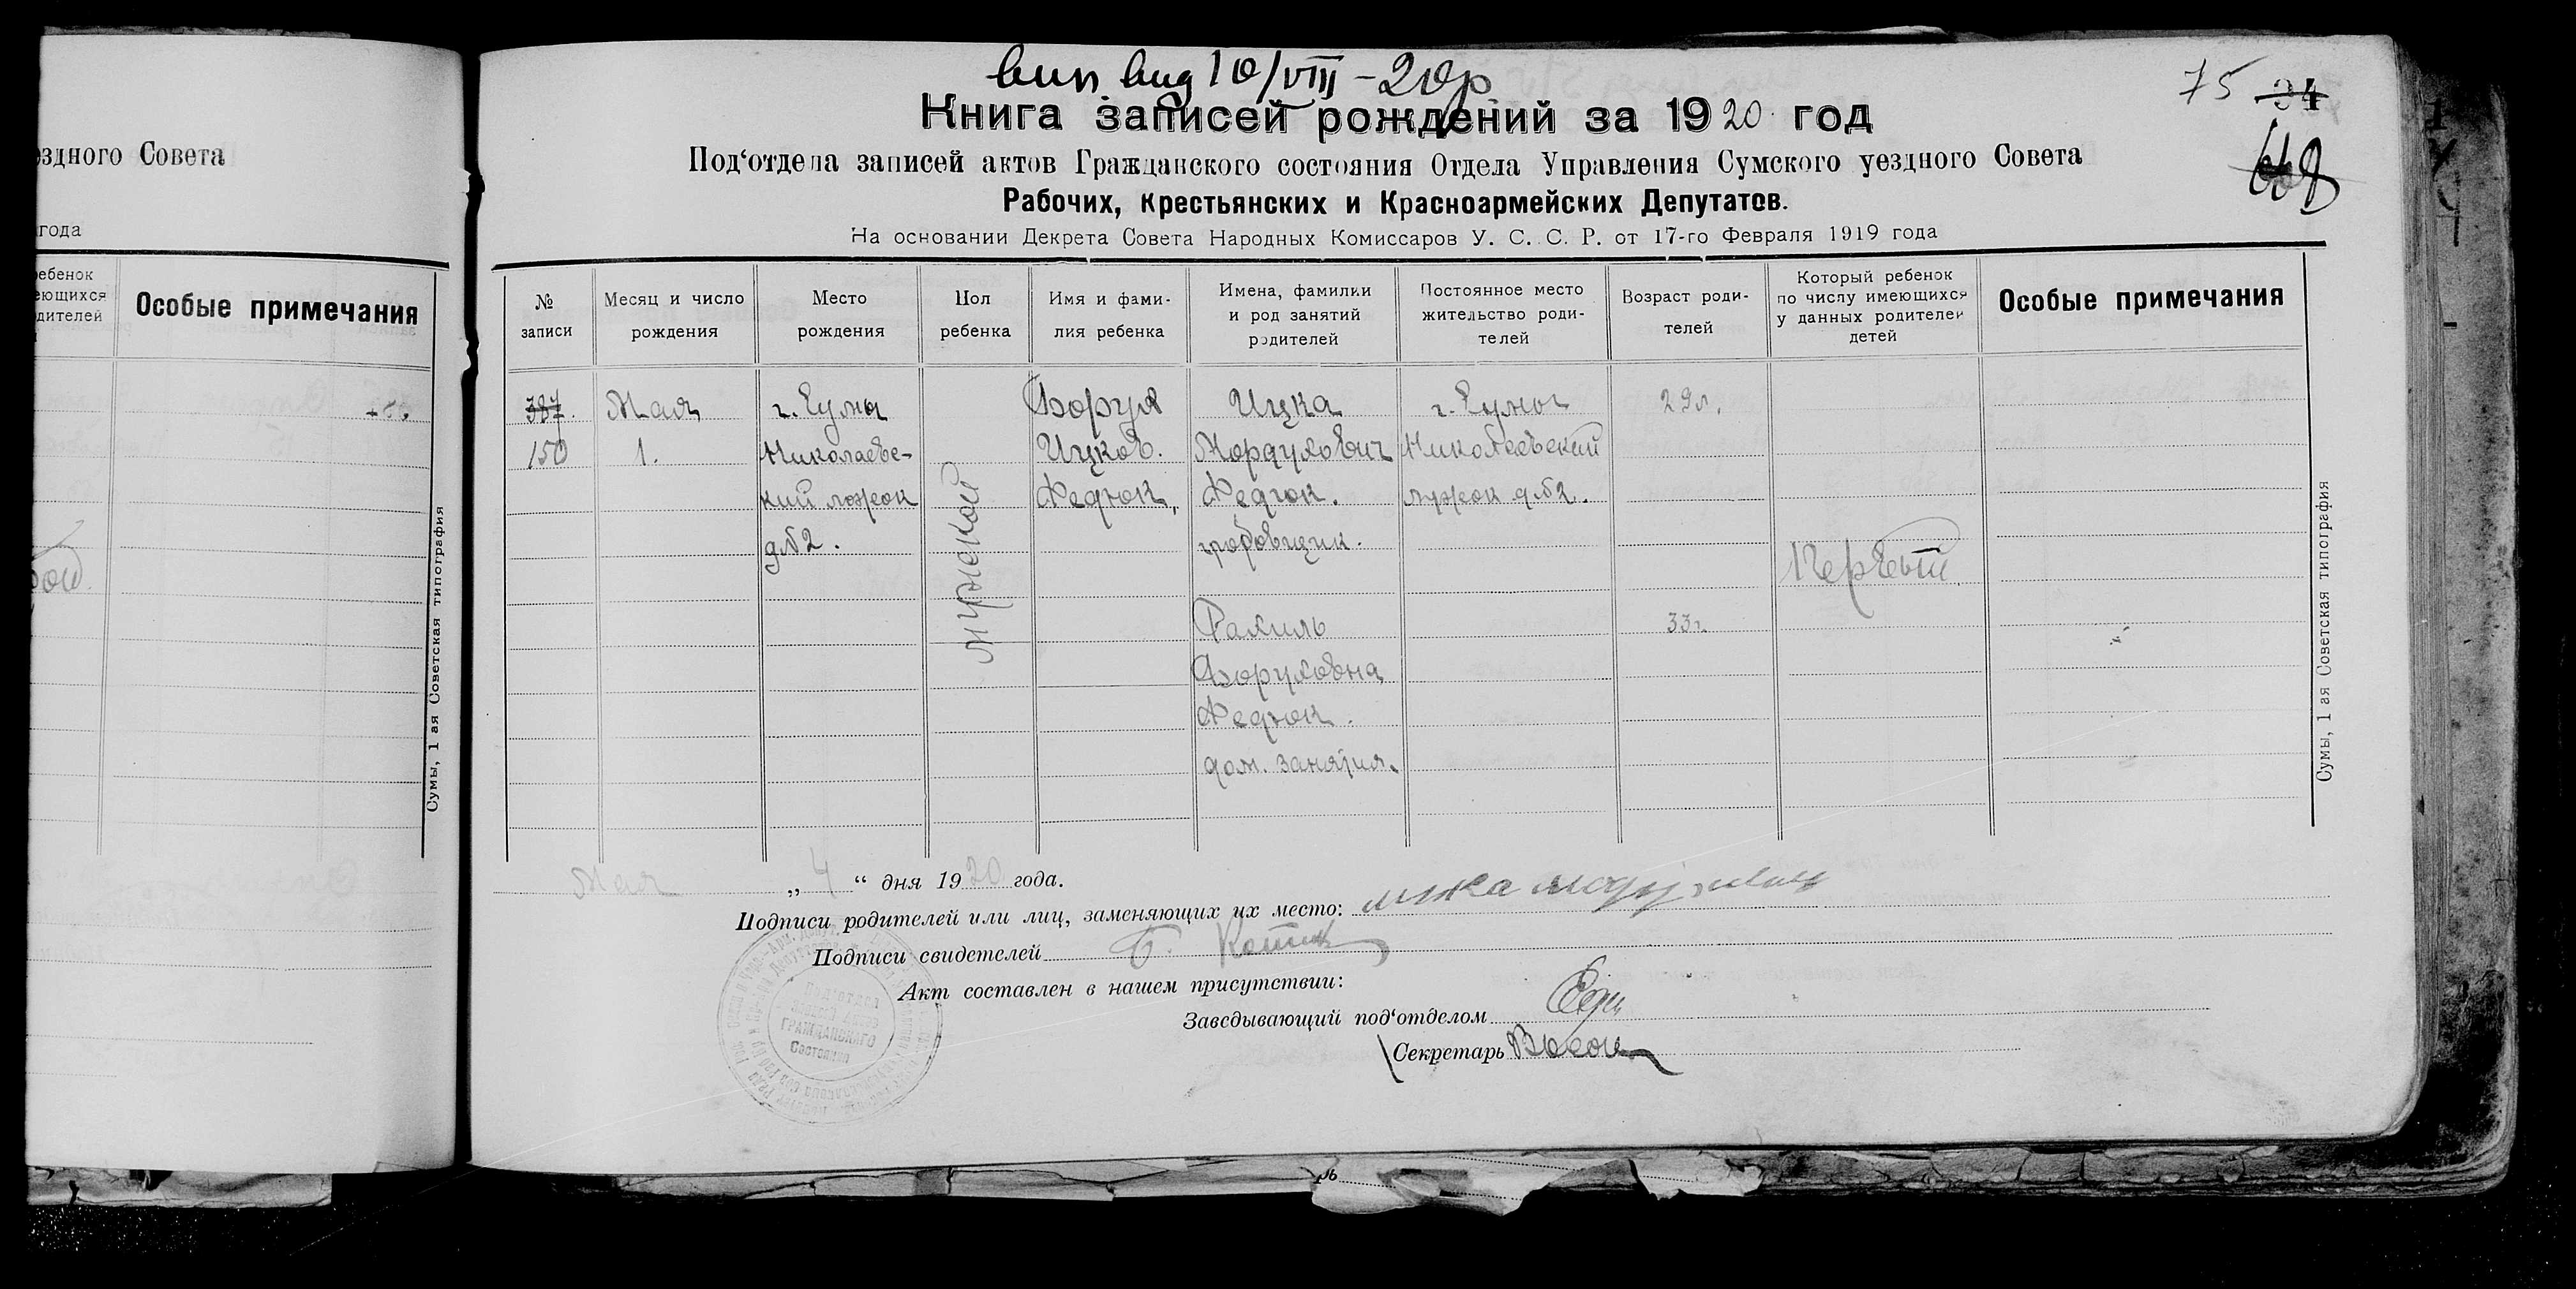 ездного Совета
года
ребенок
еющихся
дителей
Особые примечания
Сумы, 1 ая Советская типография
вип. вид 10/VIII - 20р
75 34
668
Книга записей рождений за 1920 год
Под‘отдела записей актов Гражданского состояния Отдела Управления Сумского уездного Совета
Рабочих, Крестьянских и Красноармейских Депутатов.
На основании Декрета Совета Народных Комиссаров У. С. С. Р. от 17-го Февраля 1919 года
№ записи
Месяц и число рождения
Место рождения
Пол ребенка
Имя и фамилия ребенка
Имена, фамилии и род занятий родителей
Постоянное место жительство родителей
Возраст родителей
Который ребенок по числу имеющихся у данных родителей детей
Особые примечания
387. Мая г. Сумы Борух Ицка г. Сумы 29 л.
150 1. Николаевс- Ицков. Мордухович Николаевский
кий лужок Федюк, Федюк. лужок д№2.
д№2. гробовщик.
мужской
Первый
Рахиль 33 г.
Боруховна
Федюк.
дом. занятия.
Мая „ 4 “ дня 1920 года.
Подписи родителей или лиц, заменяющих их место:
Подписи свидетелей Б. Котик
Акт составлен в нашем присутствии:
Заведывающий под‘отделом
Секретарь
Под‘отдел
ГРАЖДАНСКОГО
Состояния
Сумы, 1 ая Советская типография